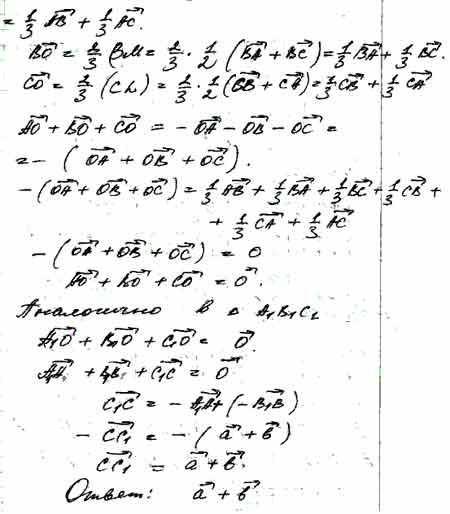 = 1/3 AB + 1/3 AC.
BO = 2/3 BM = 2/3 · 1/2 (BA + BC) = 1/3 BA + 1/3 BC.
CO = 2/3 (CL) = 2/3 · 1/2 (CB + CA) = 1/3 CB + 1/3 CA
AO + BO + CO = - OA - OB - OC =
= - (OA + OB + OC).
- (OA + OB + OC) = 1/3 AB + 1/3 BA + 1/3 BC + 1/3 CB +
+ 1/3 CA + 1/3 AC
- (OA + OB + OC) = 0
AO + BO + CO = 0.
Аналогично в △ A₁B₁C₁
A₁O + B₁O + C₁O = 0.
A₁A + B₁B + C₁C = 0
C₁C = - A₁A + (- B₁B)
- CC₁ = - (a + b)
CC₁ = a + b.
Ответ: a + b